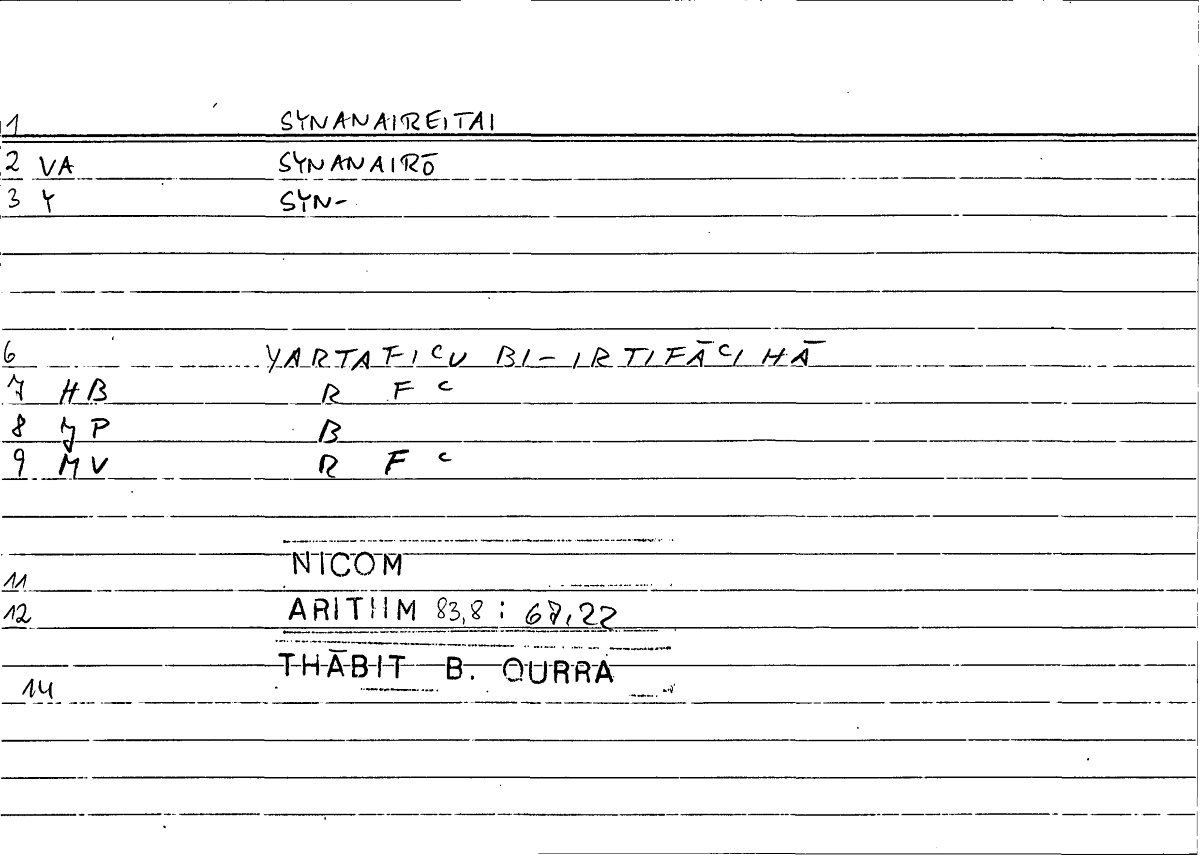 1 SYNANAIREITAI
2 VA SYNANAIRŌ
3 Y SYN-
6 YARTAFICU BI-IRTIFĀCIHĀ
7 HB R F C
8 YP B
9 MV R F C
NICOM
11
12 ARITIIM 83,8 : 67,22
THĀBIT B. QURRA
14